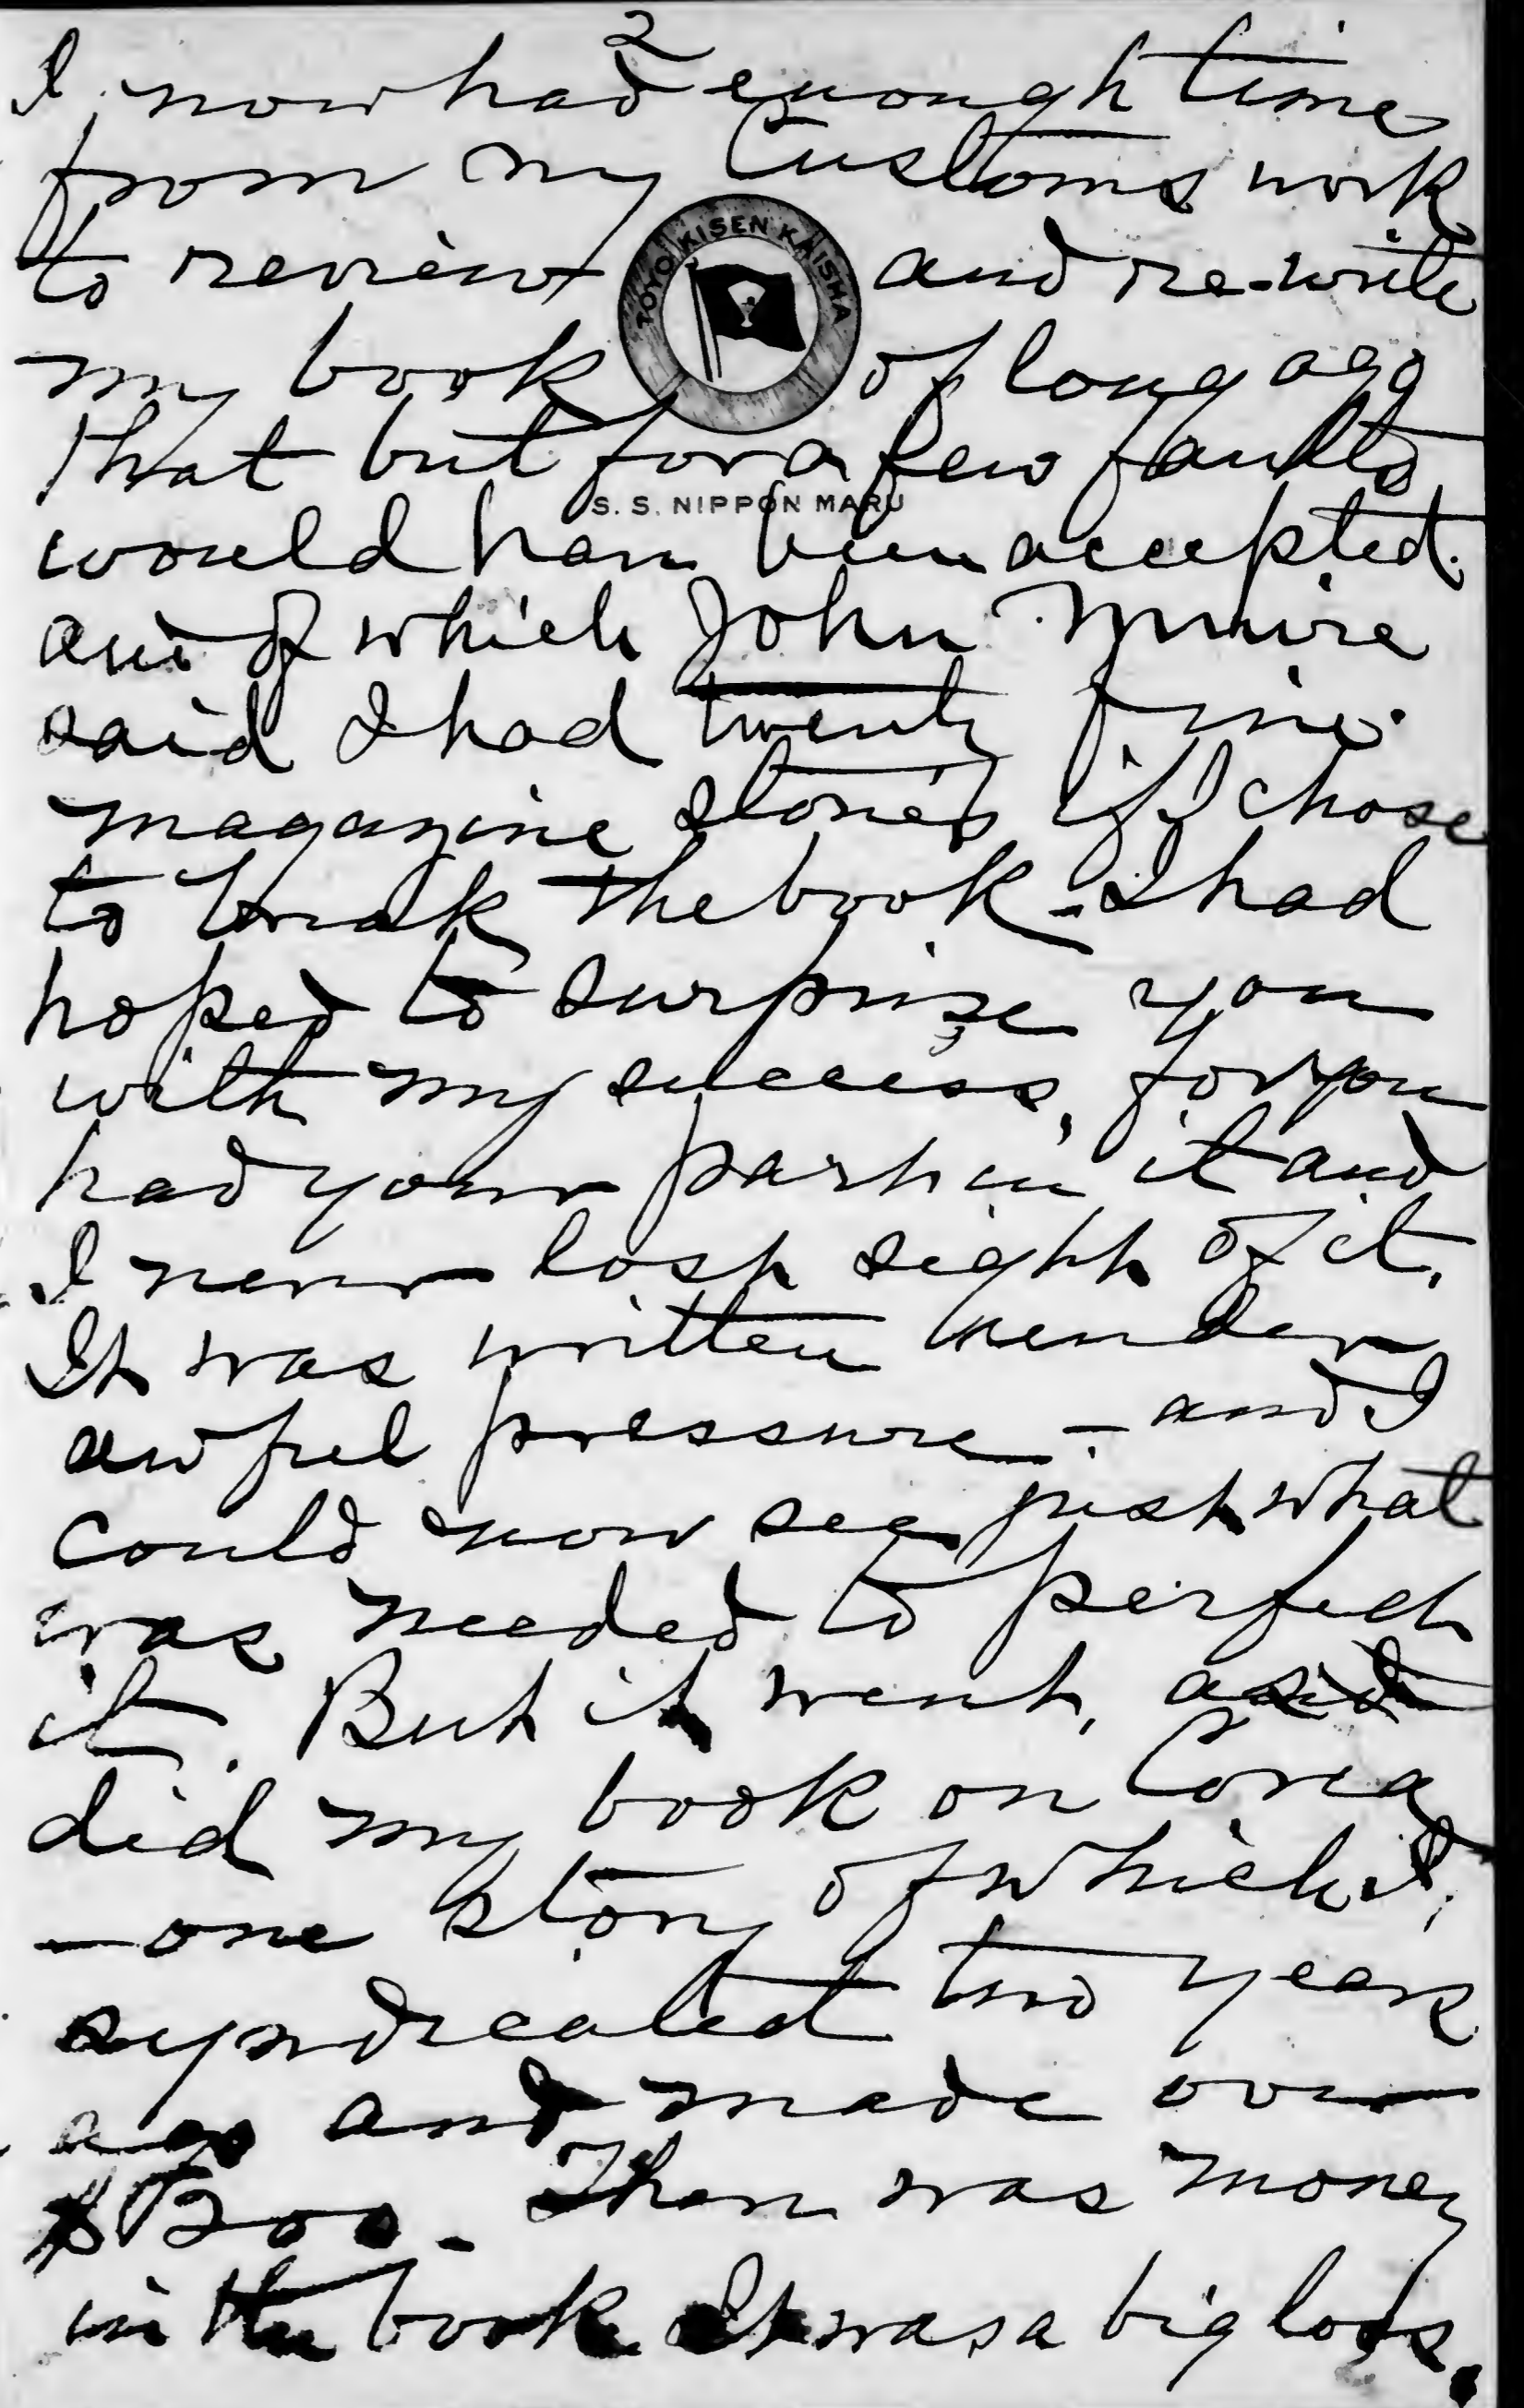 2
I now had enough time
from my Customs work
to review and re-write
TOYO KISEN KAISHA
my book of long ago
that but for a few faults
S. S. NIPPON MARU
would have been accepted.
and of which John Muire
said I had twenty fine
magazine stories if I chose
to break the book - I had
hoped to surprise you
with my success, for you
had your part in it and
I never lost sight of it.
It was written under
awful pressure - and I
could now see just what
was needed to perfect
it. But it went, and
did my book on Corea
- one story of which I,
syndicated two years
ago and made over
$200 - There was money
in the book It was a big loss.